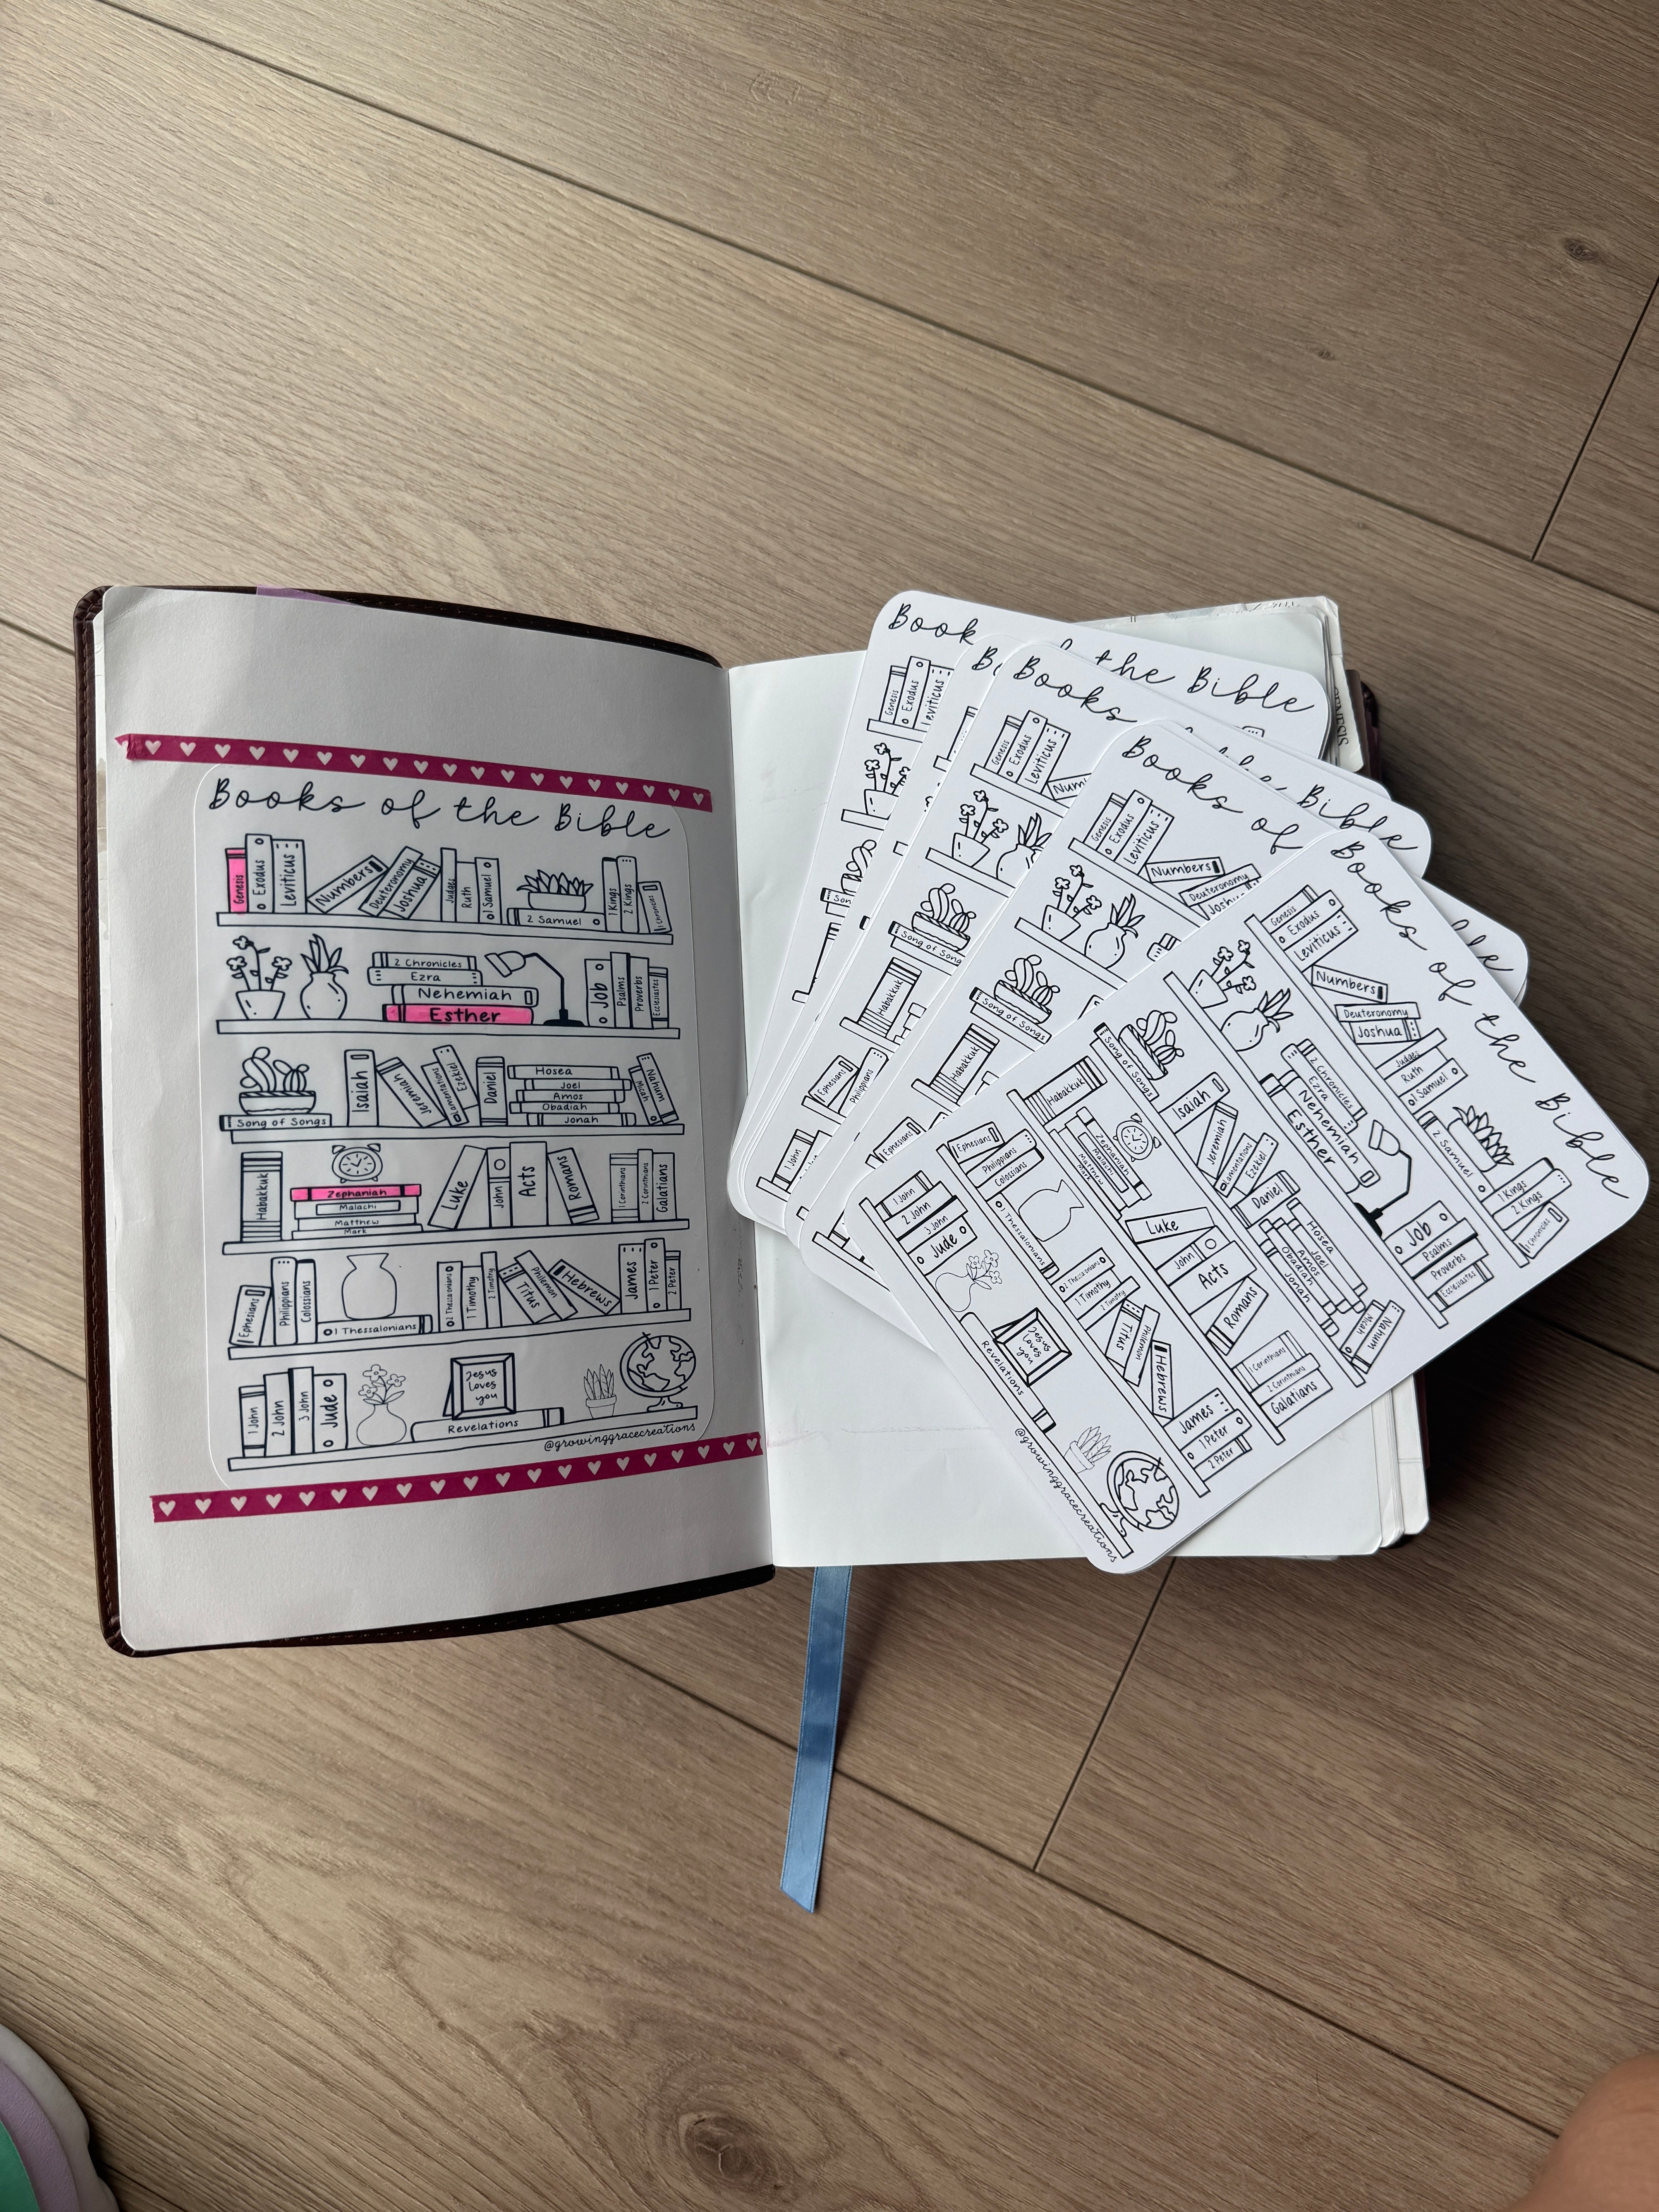 Books of the Bible
Genesis
Exodus
Leviticus
Numbers
Deuteronomy
Joshua
Judges
Ruth
1 Samuel
2 Samuel
1 Kings
2 Kings
1 Chronicles
2 Chronicles
Ezra
Nehemiah
Esther
Job
Psalms
Proverbs
Ecclesiastes
Song of Songs
Isaiah
Jeremiah
Lamentations
Ezekiel
Daniel
Hosea
Joel
Amos
Obadiah
Jonah
Micah
Nahum
Habakkuk
Zephaniah
Malachi
Matthew
Mark
Luke
John
Acts
Romans
1 Corinthians
2 Corinthians
Galatians
Ephesians
Philippians
Colossians
1 Thessalonians
2 Thessalonians
1 Timothy
2 Timothy
Titus
Philemon
Hebrews
James
1 Peter
2 Peter
1 John
2 John
3 John
Jude
Jesus
loves
you
Revelations
@growinggracecreations
Book the Bible
Genesis
Exodus
Leviticus
Son
Ephesians
Philippians
1 John
Books
Genesis
Exodus
Leviticus
Num
Song of Song
Habakkuk
Ephesians
Bible
Books of
Genesis
Exodus
Leviticus
Numbers
Deuteronomy
Josh
Song of Songs
Habakkuk
GENESIS
Books of the Bible
Genesis
Exodus
Leviticus
Numbers
Deuteronomy
Joshua
Judges
Ruth
1 Samuel
2 Samuel
1 Kings
2 Kings
1 Chronicles
2 Chronicles
Ezra
Nehemiah
Esther
Job
Psalms
Proverbs
Ecclesiastes
Song of Songs
Isaiah
Jeremiah
Lamentations
Ezekiel
Daniel
Hosea
Joel
Amos
Obadiah
Jonah
Micah
Nahum
Habakkuk
Zephaniah
Malachi
Matthew
Mark
Luke
John
Acts
Romans
1 Corinthians
2 Corinthians
Galatians
Ephesians
Philippians
Colossians
1 Thessalonians
2 Thessalonians
1 Timothy
2 Timothy
Titus
Philemon
Hebrews
James
1 Peter
2 Peter
1 John
2 John
3 John
Jude
Jesus
loves
you
Revelations
@growinggracecreations